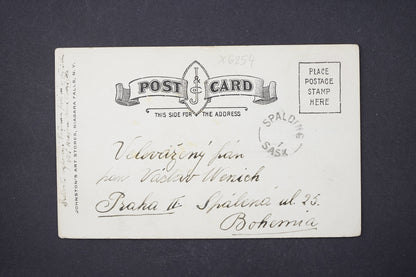 X6254
POST CARD
J & S C
THIS SIDE FOR THE ADDRESS
PLACE
POSTAGE
STAMP
HERE
SPALDING
SASK
Velevážený pán
pan Václav Wenzich
Praha II Spálená ul 25.
Bohemia
JOHNSTON'S ART STORES, NIAGARA FALLS, N.Y.